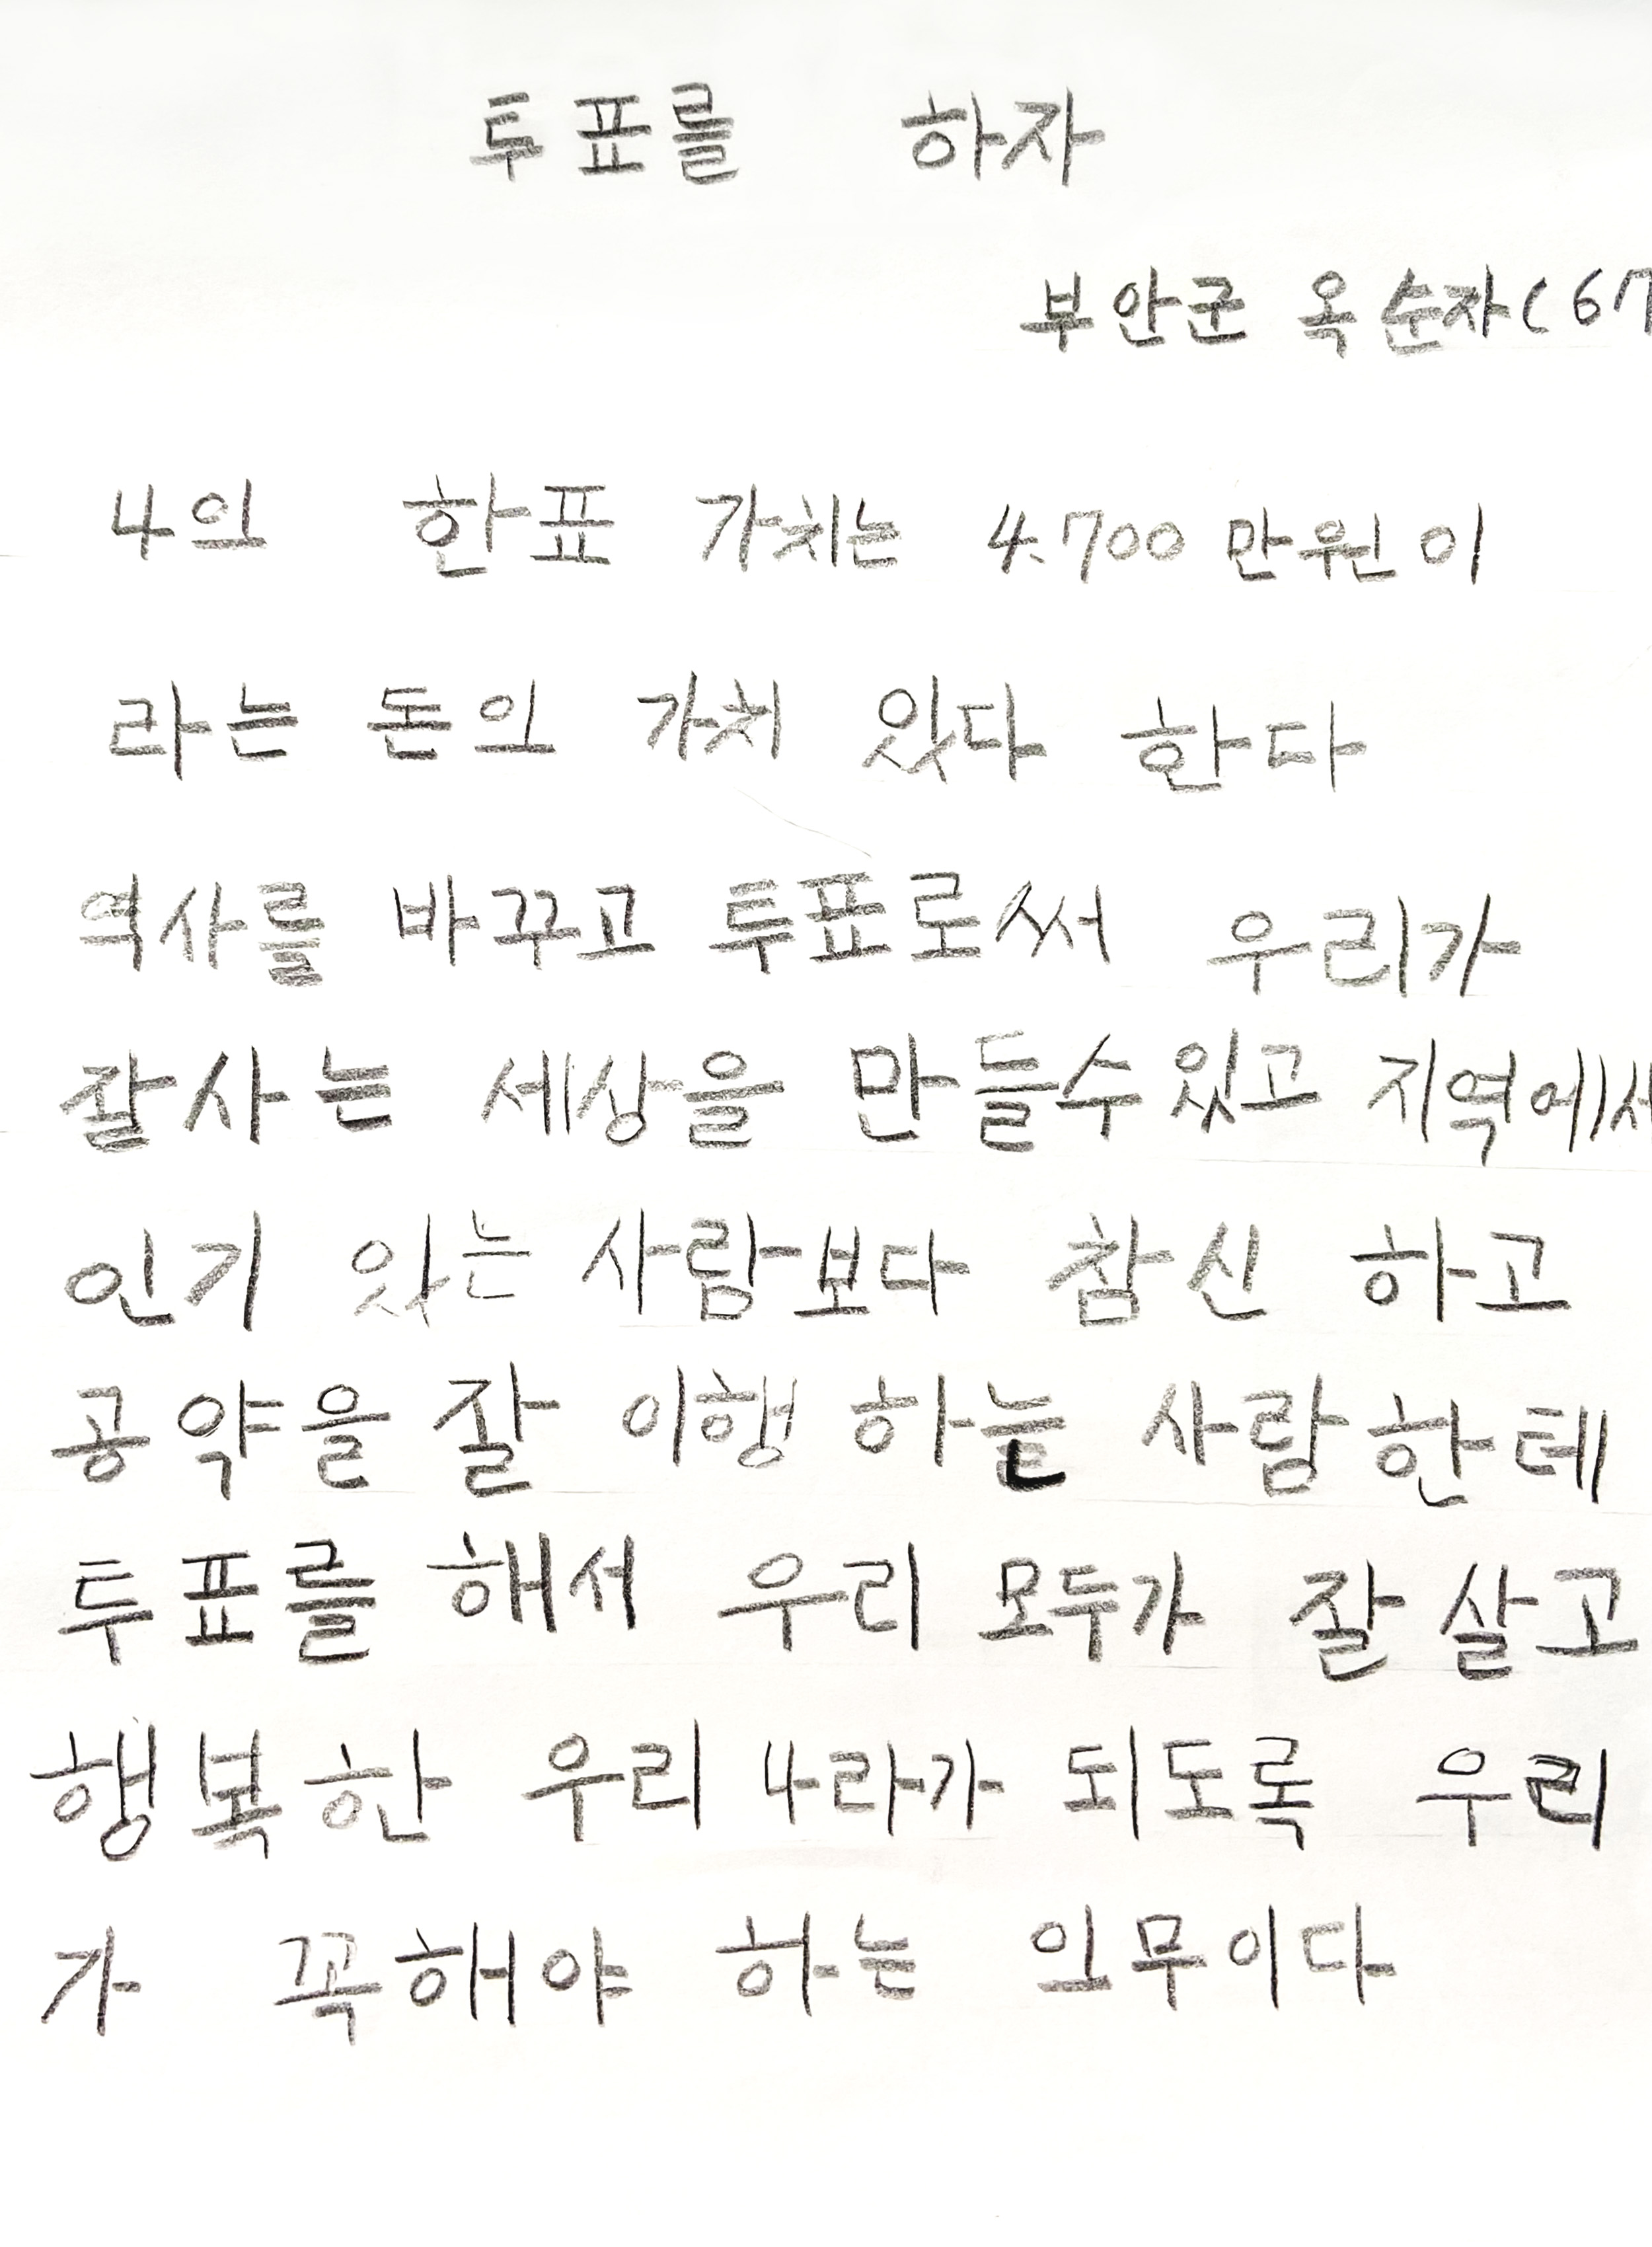 투표를 하자
부안군 옥순자(67
나의 한표 가치는 4.700만원이
라는 돈의 가치 있다 한다
역사를 바꾸고 투표로써 우리가
잘사는 세상을 만들수 있고 지역에서
인기 있는 사람보다 참신 하고
공약을 잘 이행 하는 사람한테
투표를 해서 우리 모두가 잘 살고
행복한 우리 나라가 되도록 우리
가 꼭해야 하는 의무이다